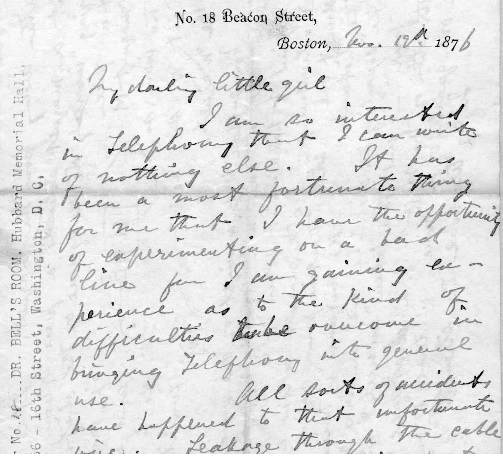 No. 18 Beacon Street,
Boston, Nov. 19th 1876
My darling little girl
I am so interested
in Telephony that I can write
of nothing else. It has
been a most fortunate thing
for me that I have the opportunity
of experimenting on a bad
line for I am gaining ex-
perience as to the kind of
difficulties to be overcome in
bringing Telephony into general
use. All sorts of accidents
have happened to that unfortunate
Leakage through the cable
DR. BELL'S ROOM, Hubbard Memorial Hall,
16th Street, Washington, D. C.